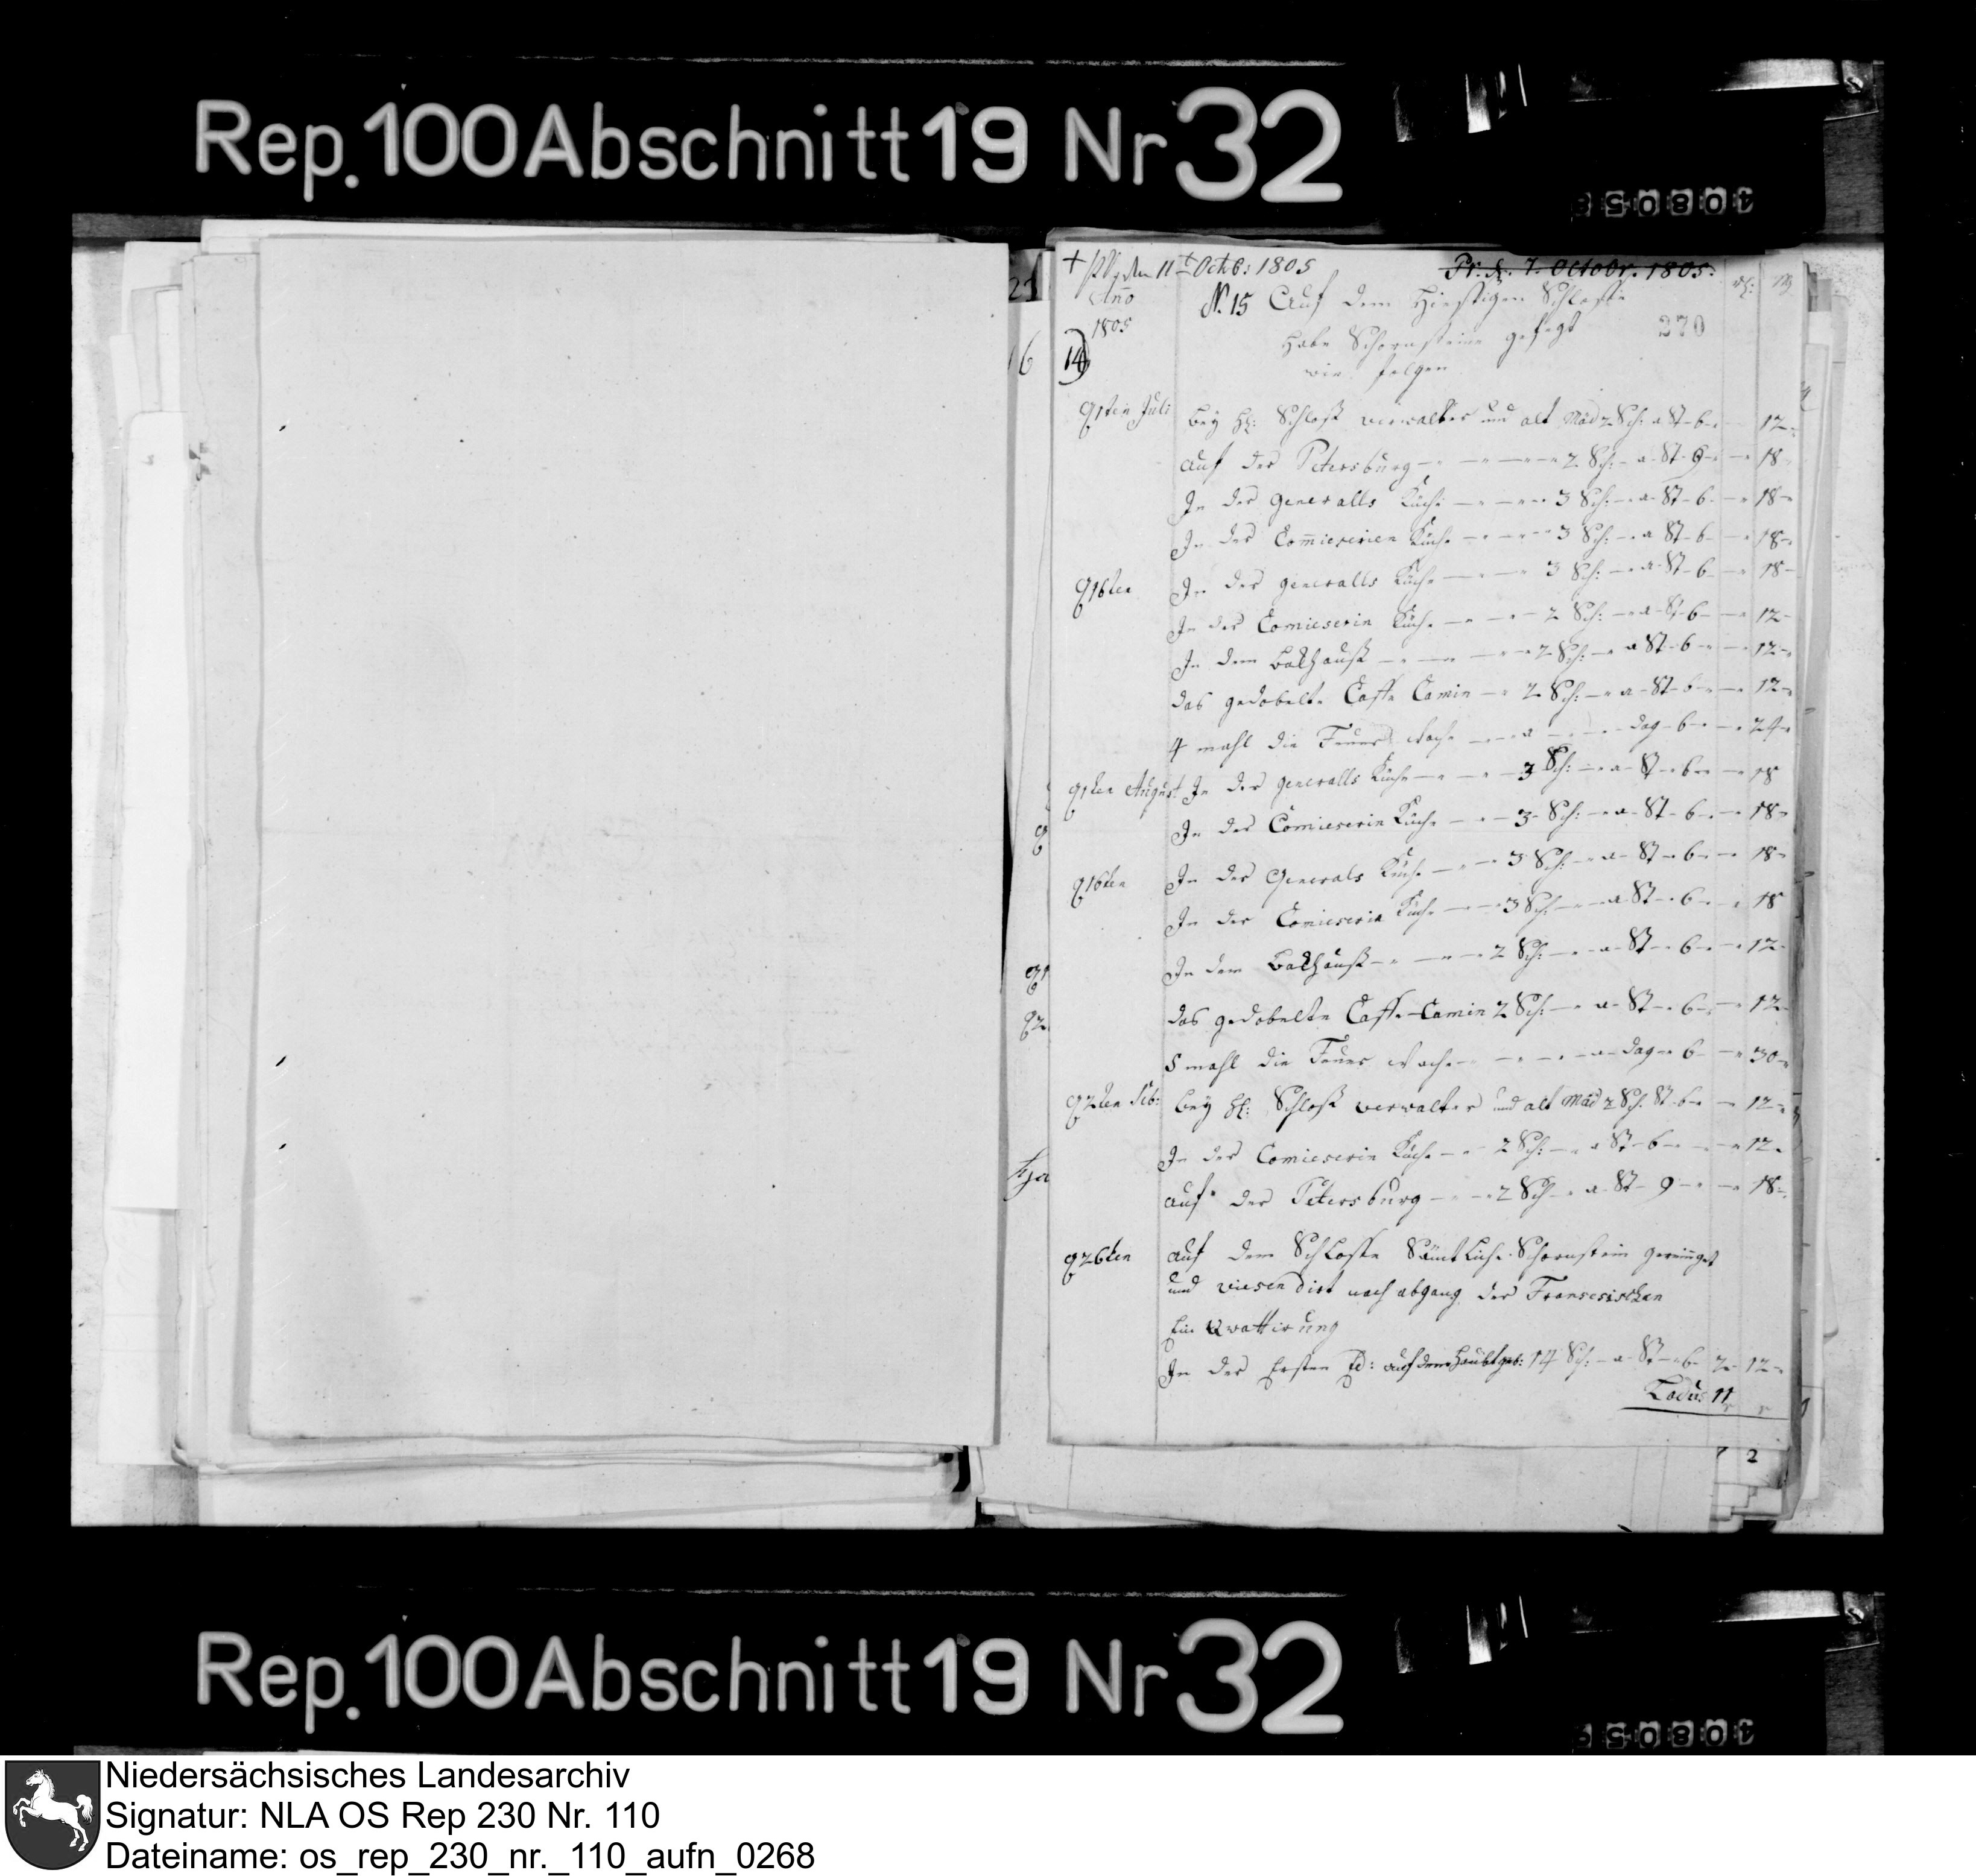 Rep. 100 Abschnitt 19 Nr 32
408058
21
+ den 11t Octb: 1805
Pr. d. 7. Octobr. 1805.
Anno 1805
N. 15 Auf dem Hiesigen Schlosse
270
habe Schornsteine gefegt
wie folgen
16
14
d 1ten Juli bey H: Schloß verwalter und alt Mäd 2 Sch: a St 6 12
auf der Petersburg 2 Sch: a St 9 18
In der Generalls Küche 3 Sch: a St 6 18
In der Comieserien Küche 3 Sch: a St 6 18
d 16ten In der generalls Küche 3 Sch: a St 6 18
In der Comieserin Küche 2 Sch: a St 6 12
In dem Bakhauß 2 Sch: a St 6 12
das gedobelte Caffe Camin 2 Sch: a St 6 12
4 mahl die Feuer Wache a dag 6 24
d 1ten August In der generalls Küche 3 Sch: a St 6 18
In der Comieserin Küche 3 Sch: a St 6 18
d 16ten In der Generals Küche 3 Sch: a St 6 18
In der Comieserin Küche 3 Sch: a St 6 18
In dem Bakhauß 2 Sch: a St 6 12
das gedobelte Caffe Camin 2 Sch: a St 6 12
5 mahl die Feuer Wache a dag 6 30
d 2ten Seb: bey H: Schloß verwalter und alt Mäd 2 Sch. St 6 12
In der Comieserin Küche 2 Sch: a St 6 12
auf der Petersburg 2 Sch a St 9 18
d 26ten auf dem Schlosse Sämtliche Schornstein gereinget
und viesendirt nach abgang der Franserischen
Ein Qwattirung
In der Ersten Ed: auf dem Haubtgeb: 14 Sch: a St 6 2 12
Ladus 11
7 2
Rep. 100 Abschnitt 19 Nr 32
408058
Niedersächsisches Landesarchiv
Signatur: NLA OS Rep 230 Nr. 110
Dateiname: os_rep_230_nr._110_aufn_0268